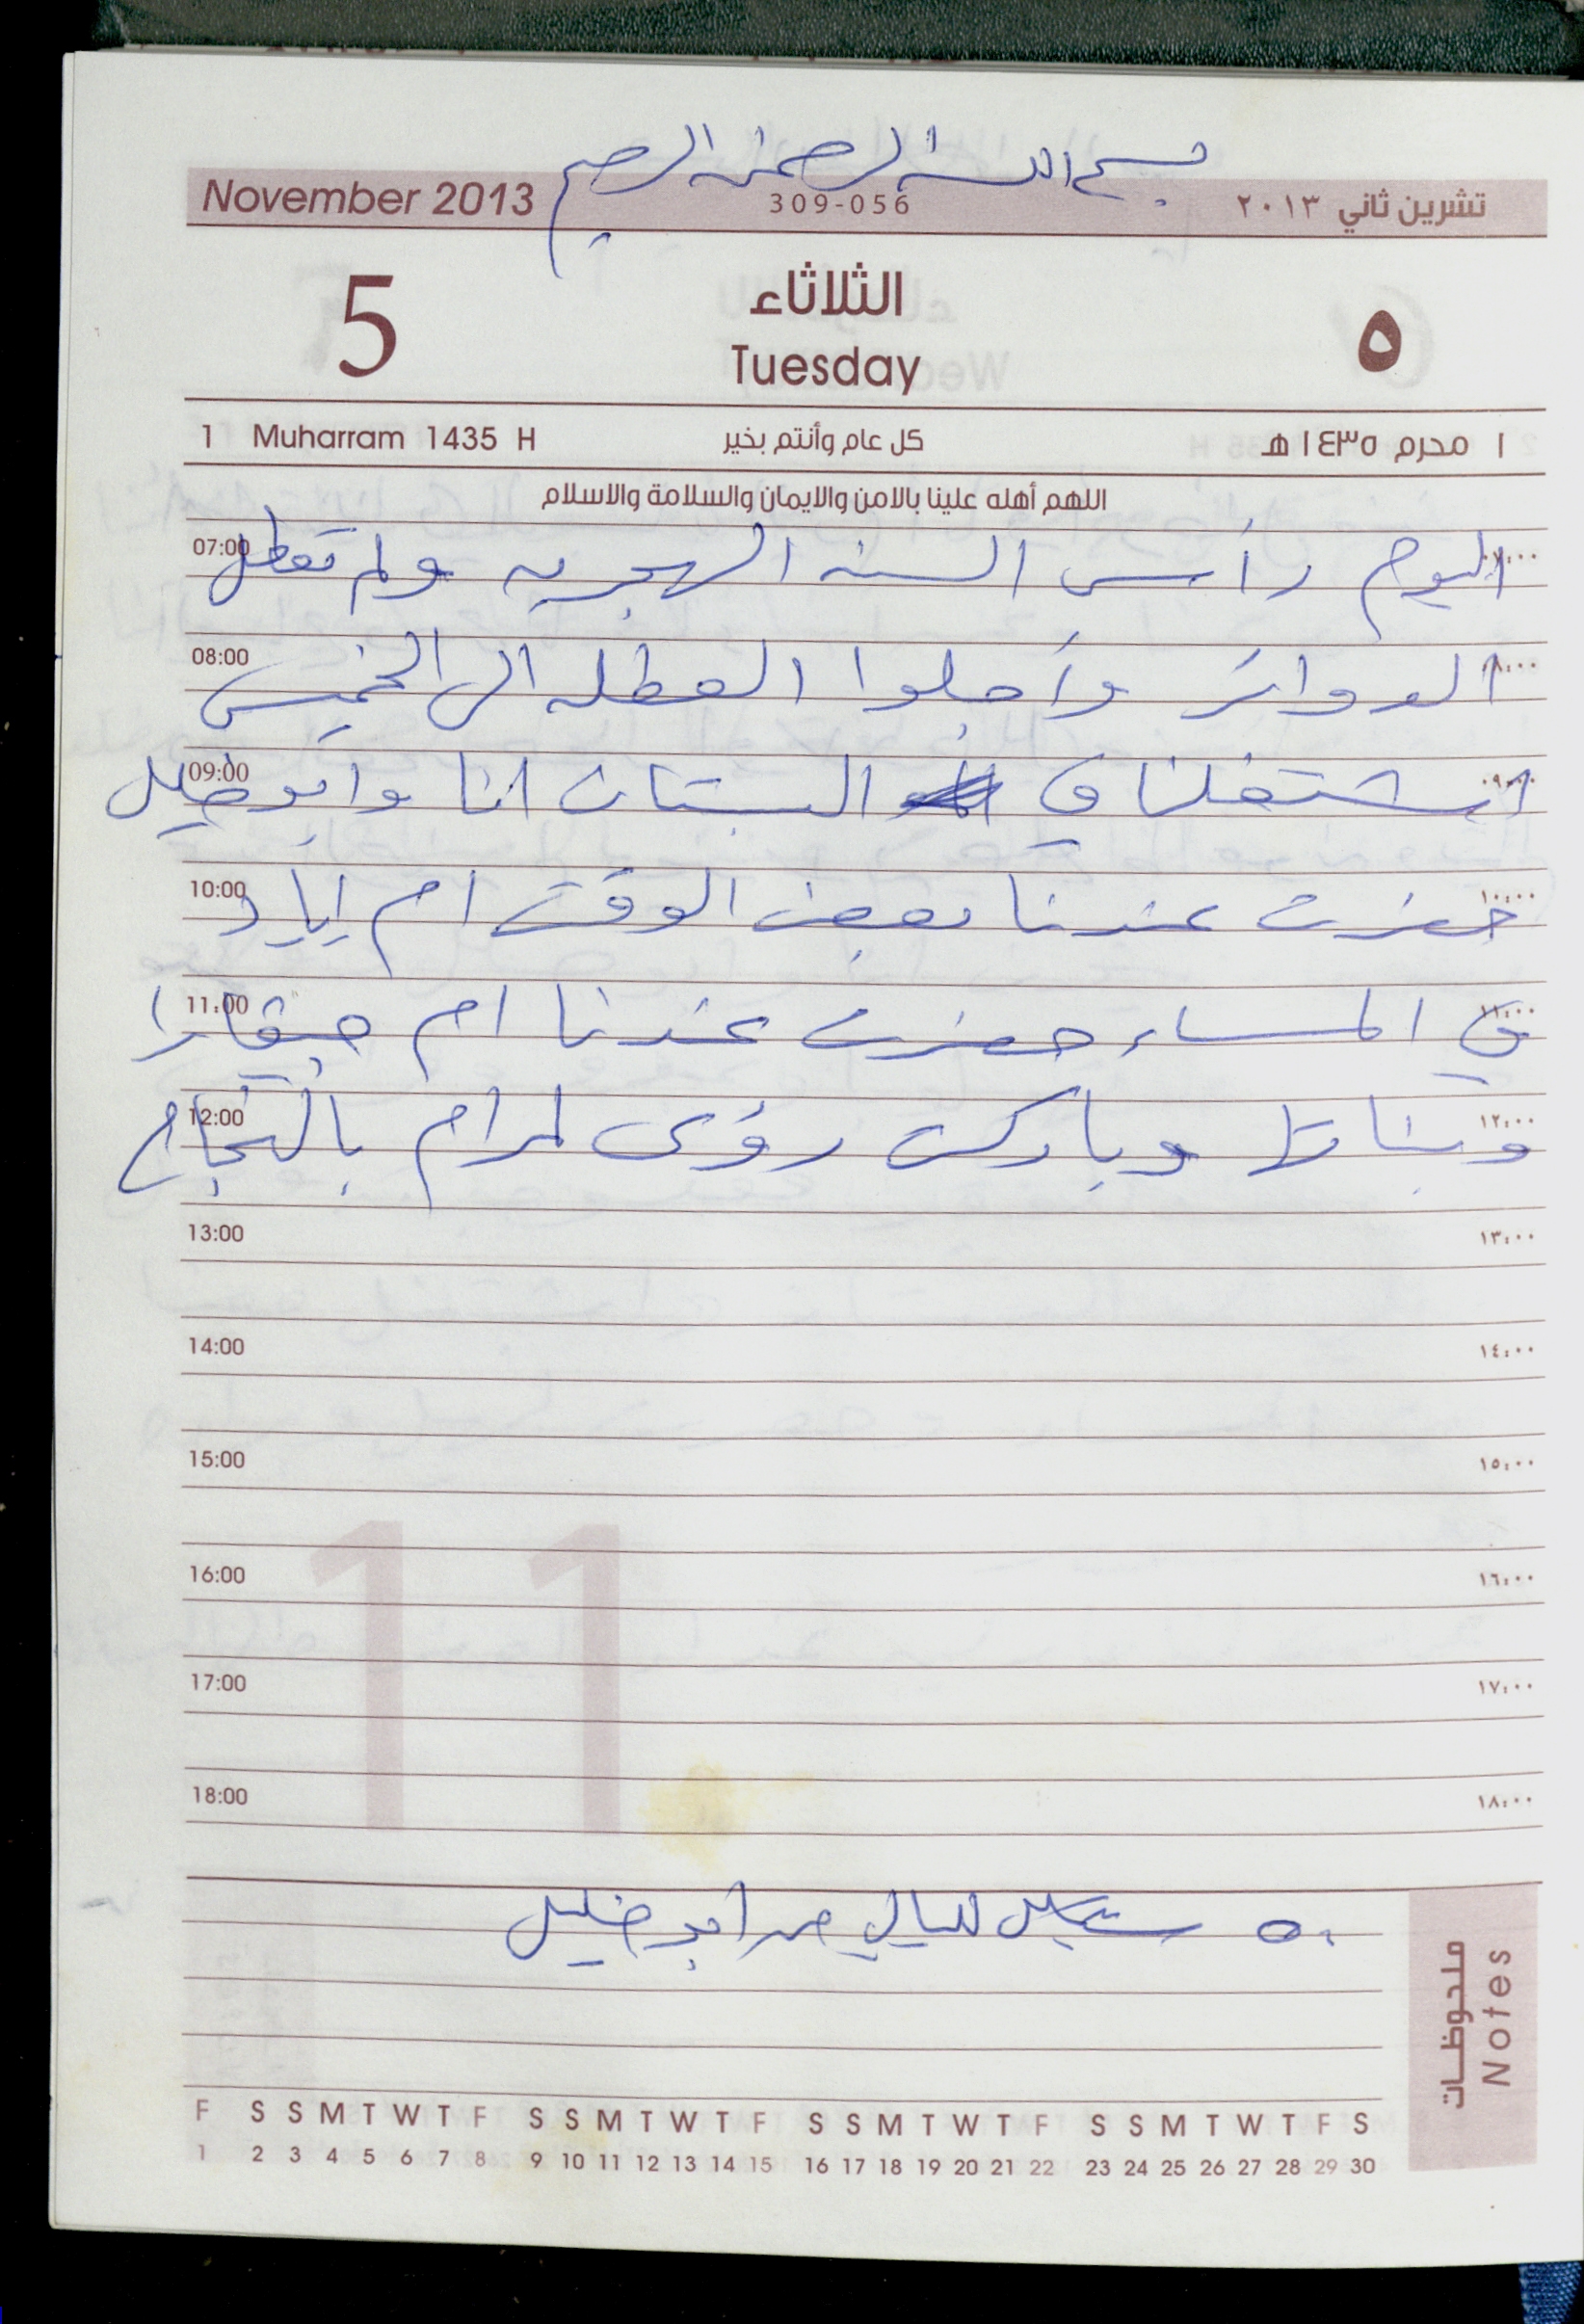 بسم الله الرحمن الرحيم
November 2013 309-056 تشرين ثاني ٢٠١٣
5 الثلاثاء ٥
Tuesday
1 Muharram 1435 H كل عام وأنتم بخير ١ محرم ١٤٣٥ هـ
اللهم أهله علينا بالامن والايمان والسلامة والاسلام
07:00 اليوم رأس السنه الهجريه ولم تعطل ٠٧:٠٠
08:00 الدوائر وأجلوا العطله الى الخميس ٠٨:٠٠
09:00 اشتغلنا في البستان انا وابو خليل ٠٩:٠٠
10:00 حضرت عندنا بعض الوقت ام إياد ١٠:٠٠
11:00 في المساء حضرت عندنا ام ١١:٠٠
12:00 وبناتها وباركت رؤى لمرام بالنجاح ١٢:٠٠
13:00 ١٣:٠٠
14:00 ١٤:٠٠
15:00 ١٥:٠٠
16:00 ١٦:٠٠
17:00 ١٧:٠٠
18:00 ١٨:٠٠
11
٥٠ شيكل من أبو خليل
ملحوظات Notes
F S S M T W T F S S M T W T F S S M T W T F S S M T W T F S
1 2 3 4 5 6 7 8 9 10 11 12 13 14 15 16 17 18 19 20 21 22 23 24 25 26 27 28 29 30